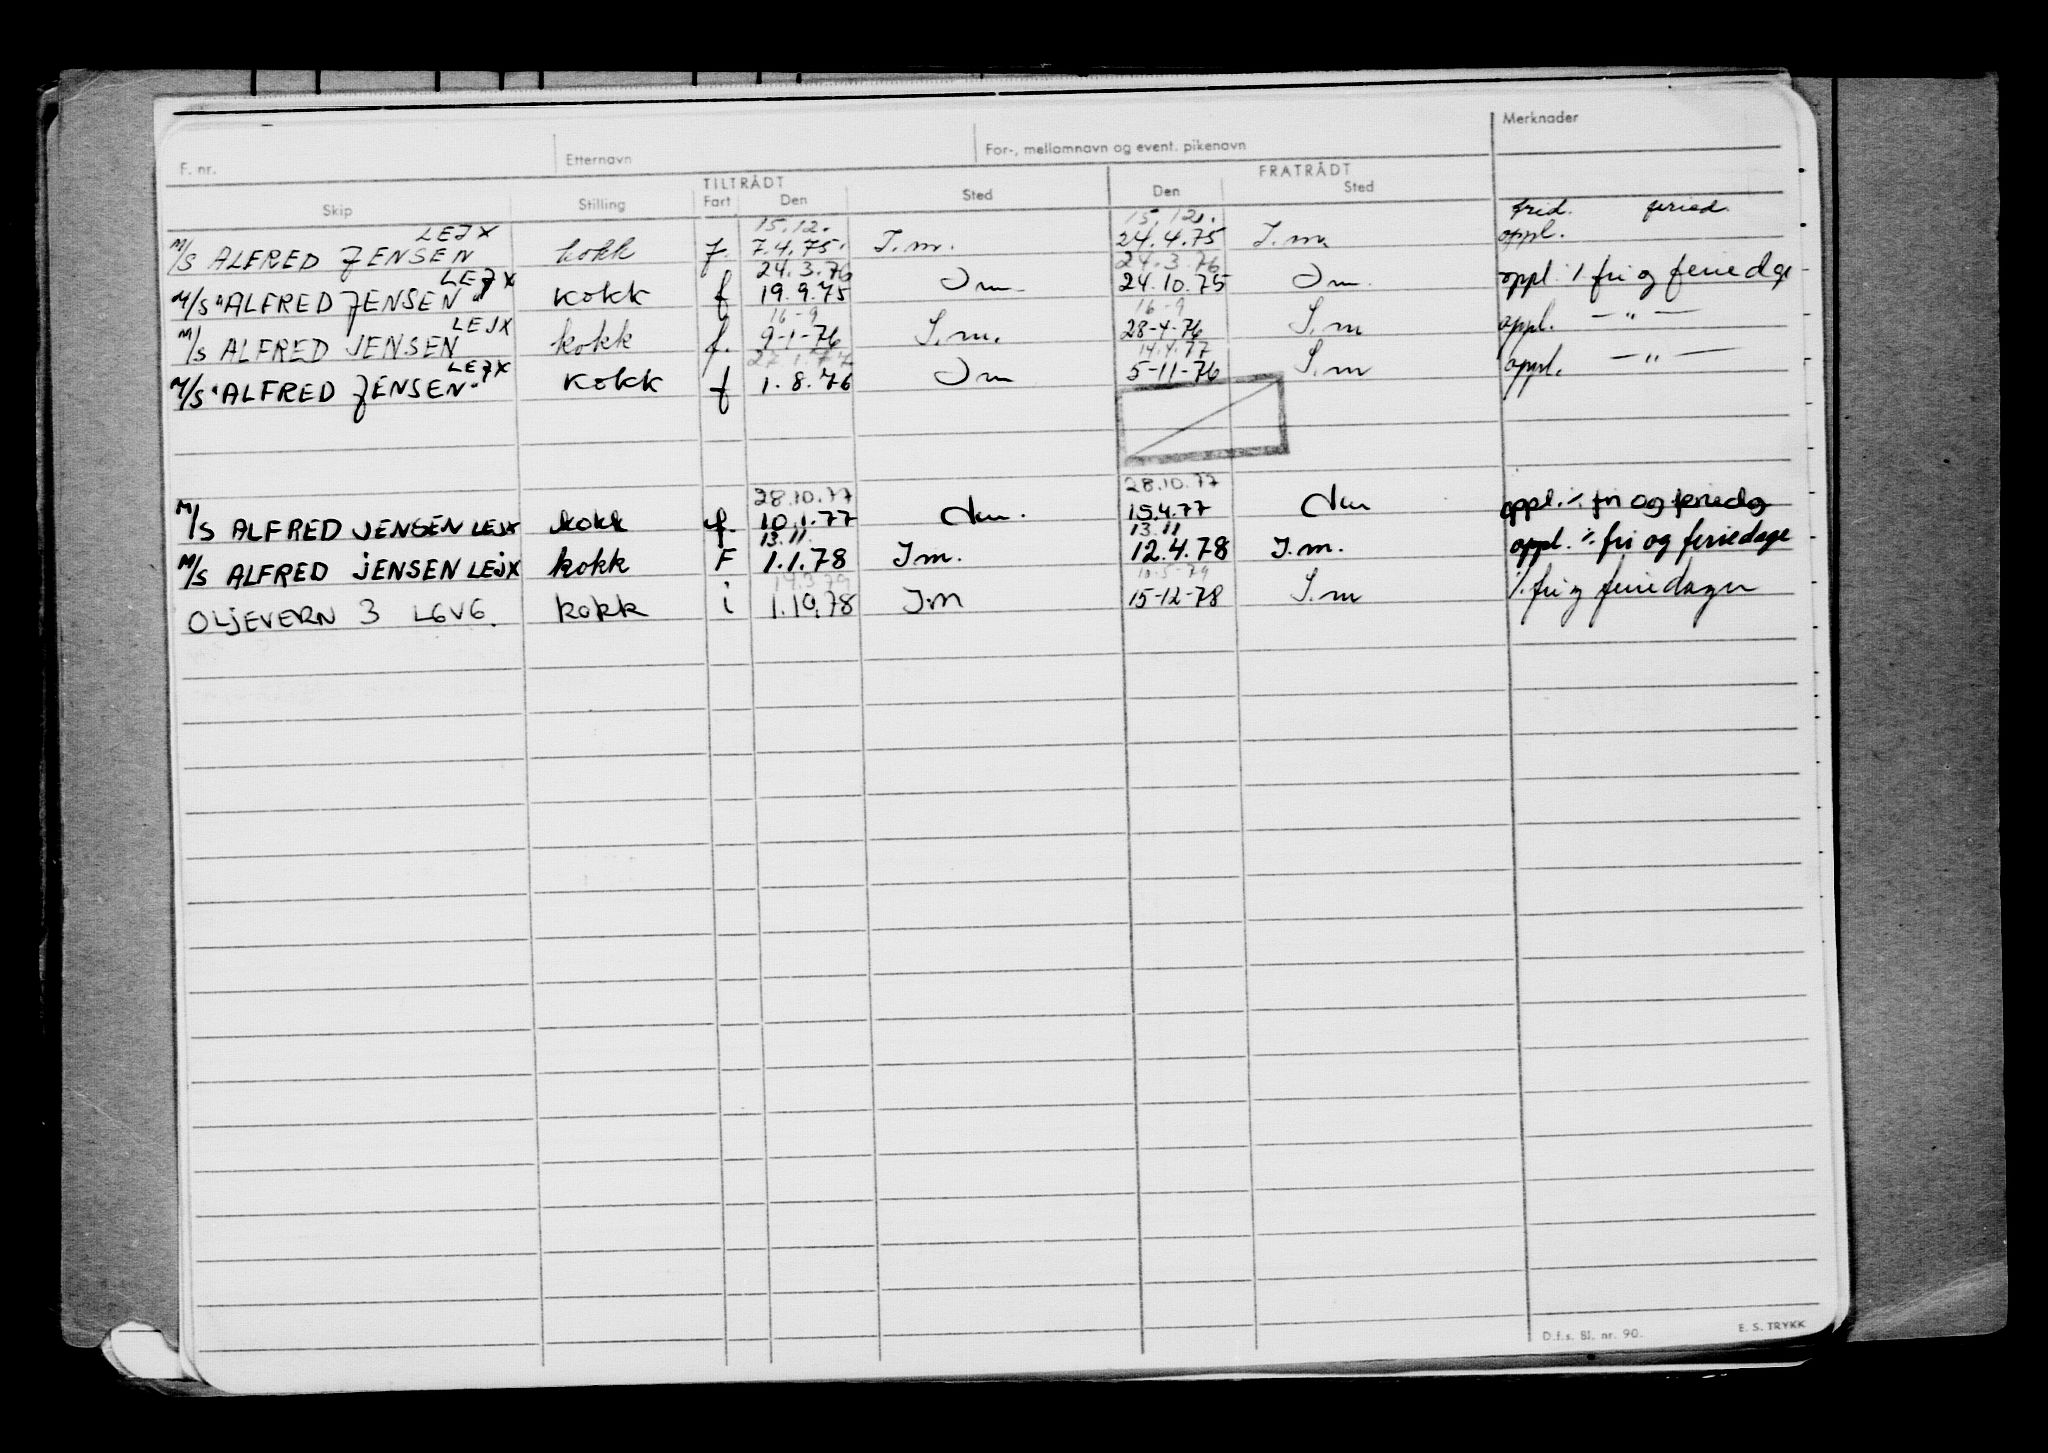 F. nr. Etternavn For-, mellomnavn og event. pikenavn Merknader
TILTRÅDT FRATRÅDT
Skip Stilling Fart Den Sted Den Sted
15.12. 15.12. frid. feried.
M/S ALFRED JENSEN LEJX kokk f. 7.4.75. I.m. 24.4.75 I.m oppl.
24.3.76 24.3.76
M/S "ALFRED JENSEN" LEJX kokk f 19.9.75 Im 24.10.75 Im. oppl. ./. fri og feriedge
16-9 16-9
M/S ALFRED JENSEN LEJX kokk f. 9-1-76 I.m. 28-4-76 I.m oppl. — " —
27.1.77 14.4.77
M/S "ALFRED JENSEN" LEJX kokk f 1.8.76 Im 5-11-76 I.m oppl. — " —
28.10.77 28.10.77
M/S ALFRED JENSEN LEJX kokk f. 10.1.77 Im. 15.4.77 Im oppl. ./. fri og feriedg
13.11. 13.11
M/S ALFRED JENSEN LEJX kokk F 1.1.78 I.m. 12.4.78 I.m. oppl. ./. fri og feriedage
14.3.79 10-5-79
OLJEVERN 3 LGVG. kokk i 1.10.78 I.M 15-12-78 I.m ./. fri og feriedager
D.f.s. Bl. nr. 90. E. S. TRYKK